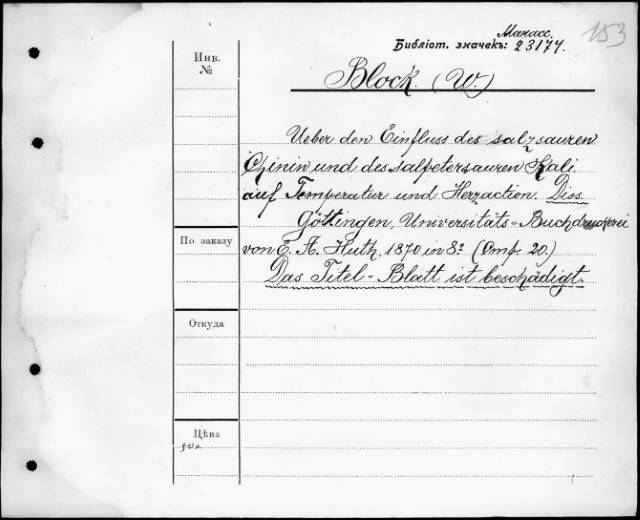 153
Манасс.
Библіот. значекъ: 23174.
Инв.
№
Block. (W.)
Ueber den Einfluss des salzsauren
Chinin und des salpetersauren Kali
auf Temperatur und Herzaction. Diss.
Göttingen, Universitäts-Buchdruckerei
По заказу
von E. A. Huth, 1870 in 8º (Отт. 20.)
Das Titel-Blatt ist beschädigt.
Откуда
Цѣна